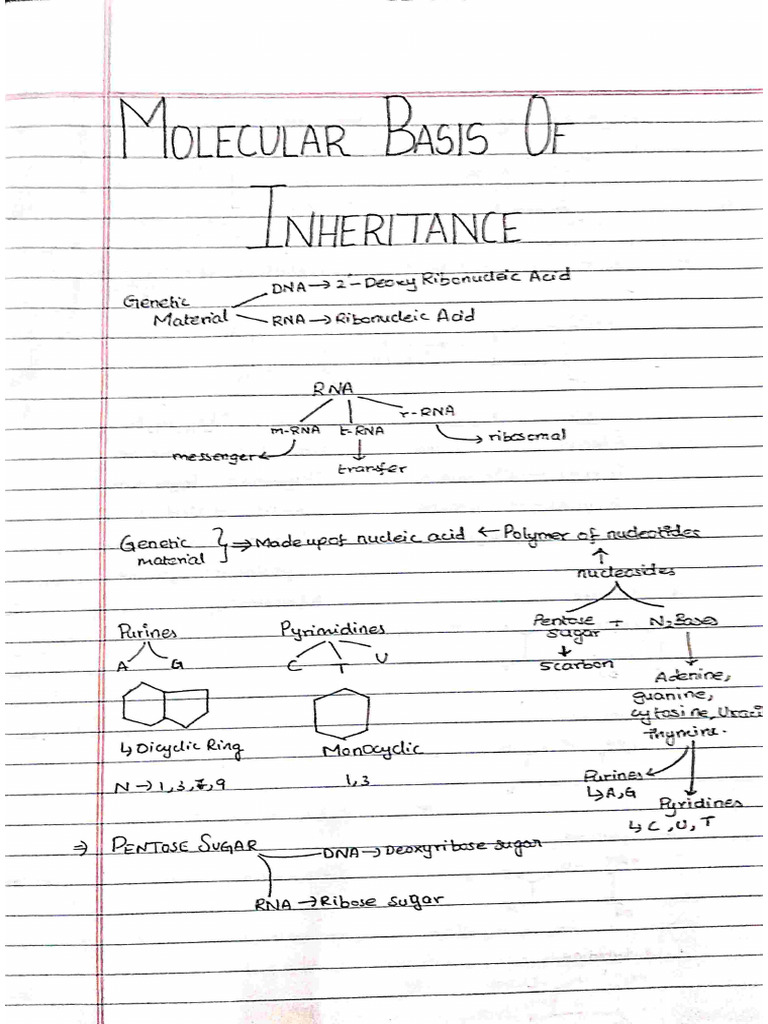 MOLECULAR BASIS OF
INHERITANCE
Genetic Material
DNA → 2'-Deoxy Ribonucleic Acid
RNA → Ribonucleic Acid
RNA
m-RNA t-RNA r-RNA
messenger transfer ribosomal
Genetic material } ⇒ Made up of nucleic acid ← Polymer of nucleotides
↑
nucleosides
Pentose sugar + N₂ Bases
5 carbon
Adenine,
guanine,
cytosine, Uraci
Thymine.
Purines
↳ A, G
Pyridines
↳ C, U, T
Purines
A G
↳ Dicyclic Ring
N → 1, 3, 7, 9
Pyrimidines
C T U
Monocyclic
1, 3
⇒ PENTOSE SUGAR
DNA → Deoxyribose sugar
RNA → Ribose sugar